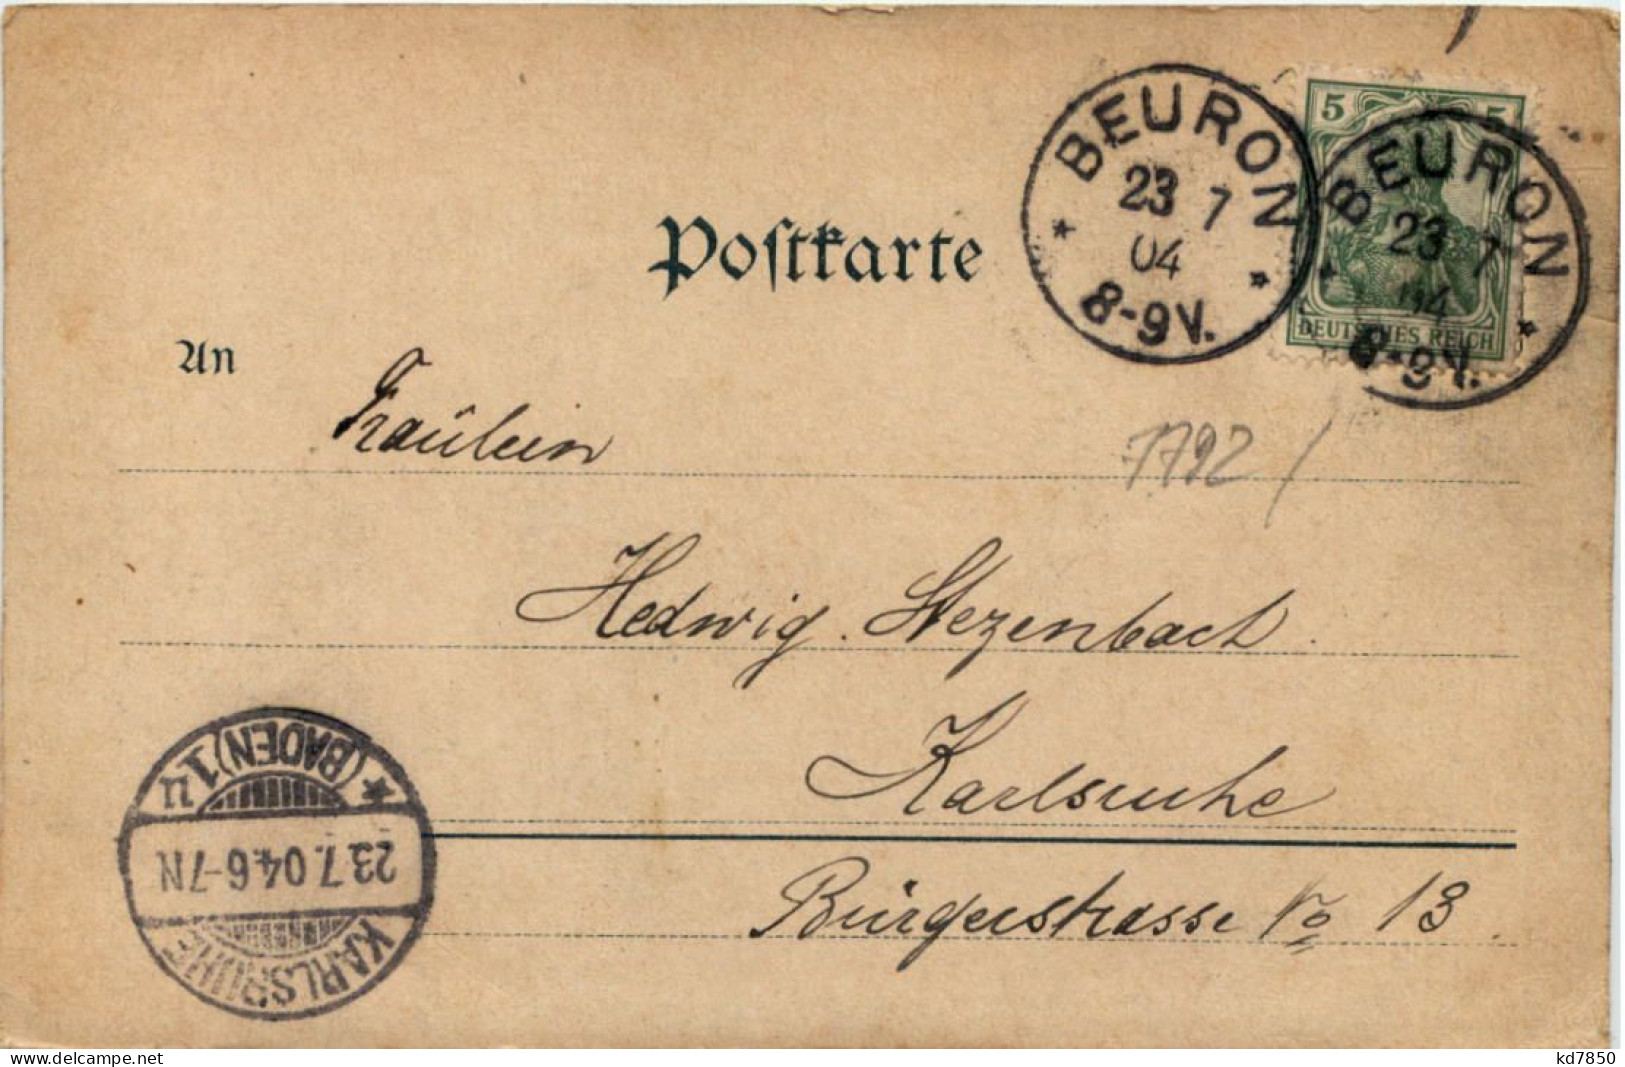 BEURON
23 7
04
8-9V.
5 5
DEUTSCHES REICH
BEURON
23 7
04
8-9V.
Postkarte
An
Fraülein
7792 /
Hedwig Stezenbach.
Karlsruhe
Bürgerstrasse No 13.
KARLSRUHE
23.7.04.6-7N
* (BADEN) 1u
www.delcampe.net
kd7850